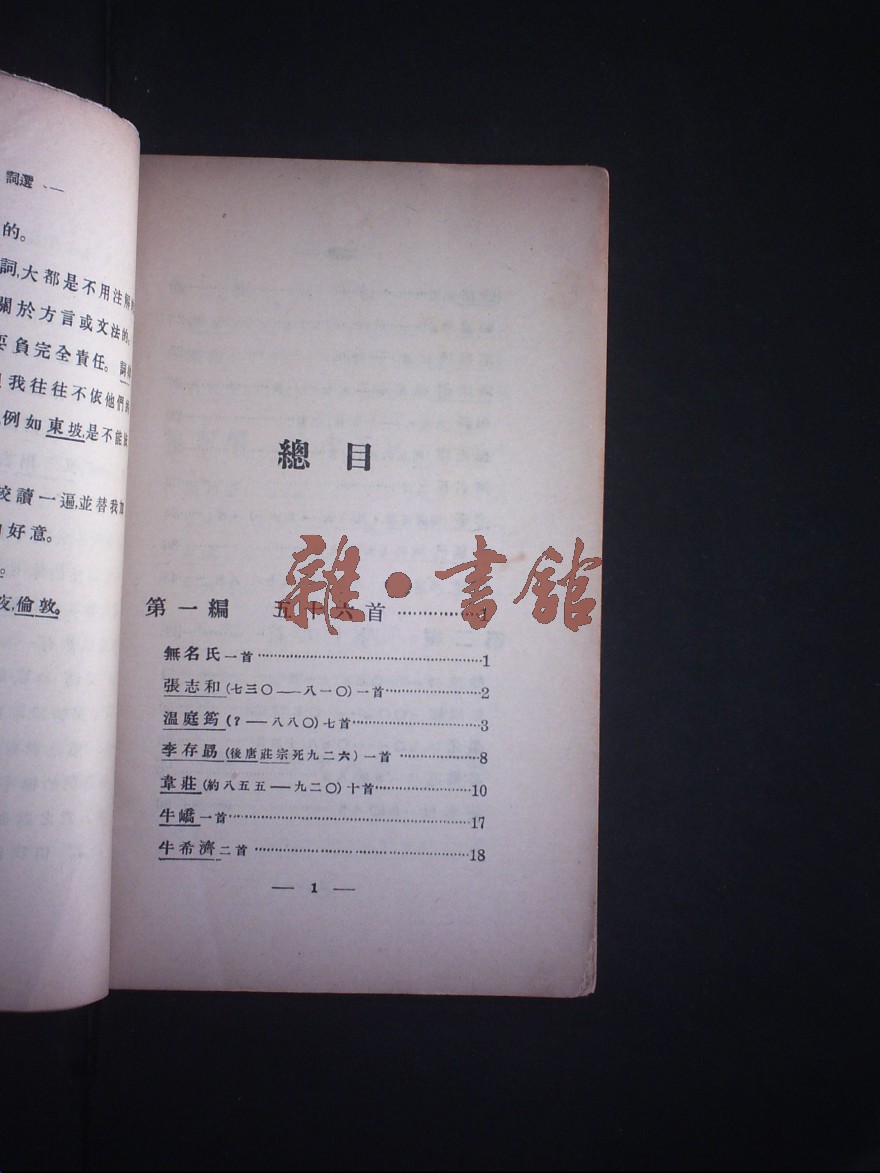 詞選 一
的。
詞,大都是不用注解
關於方言或文法的,
負完全責任。詞
我往往不依他們
例如東坡,是不能
校讀一遍,並替我加
好意。
夜,倫敦。
總目
雜·書館
第一編 五十六首……………1
無名氏一首……………1
張志和(七三〇——八一〇)一首……………2
温庭筠(?——八八〇)七首……………3
李存勗(後唐莊宗死九二六)一首……………8
韋莊(約八五五——九二〇)十首……………10
牛嶠一首……………17
牛希濟二首……………18
— 1 —